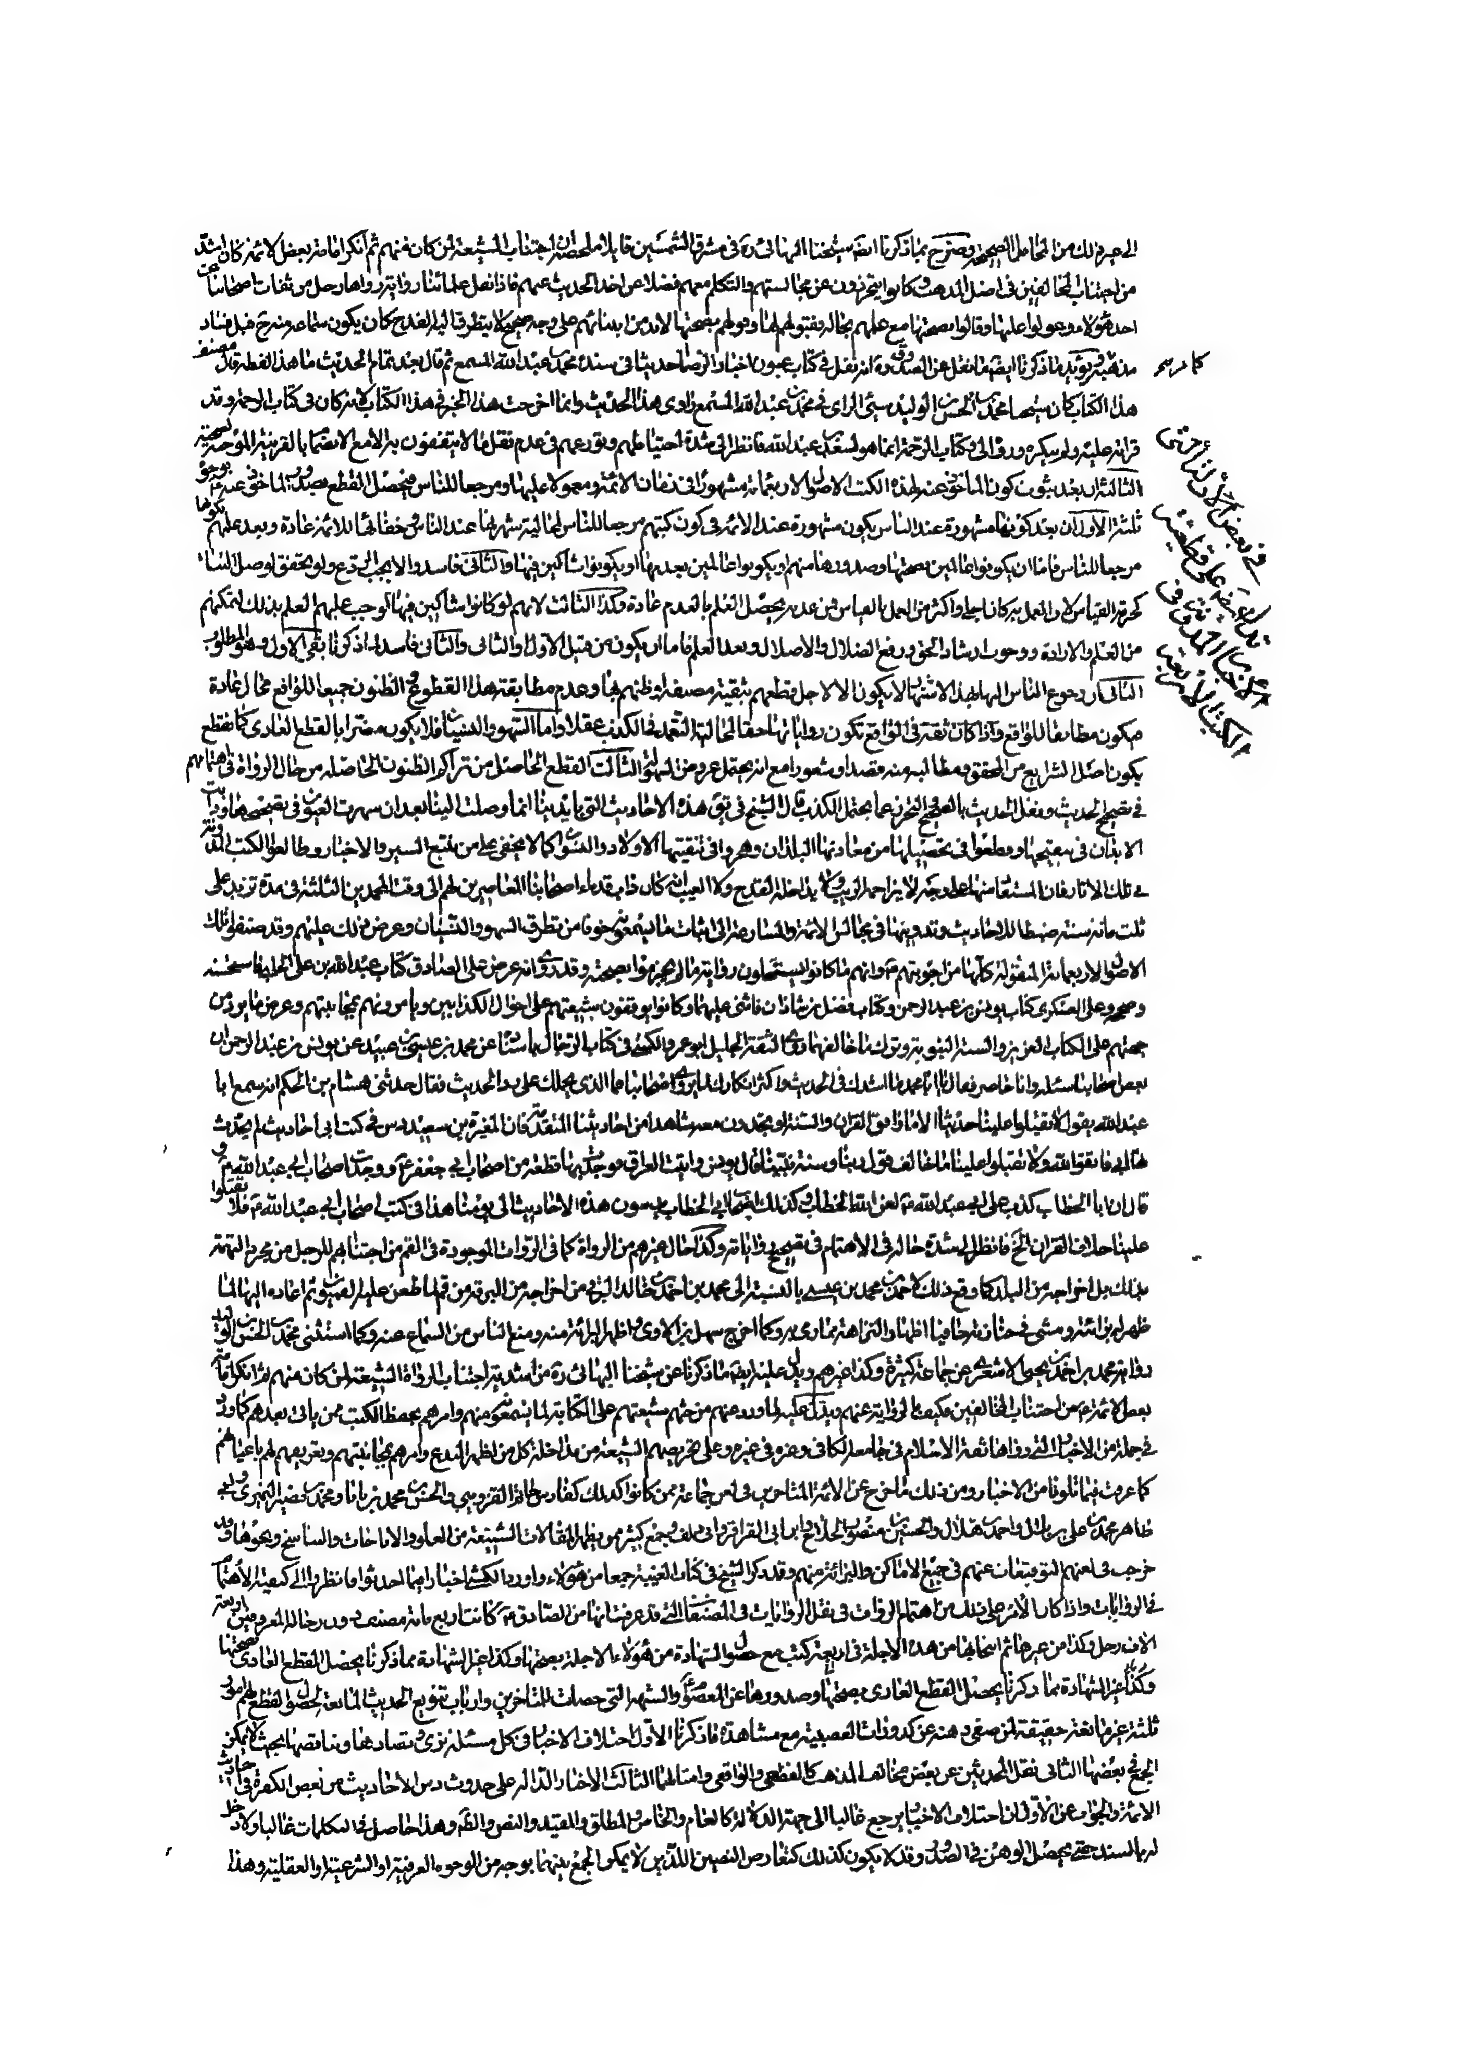 الى غير ذلك من المحامل الصحيحة وصرح بما ذكرنا ايضا شيخنا البهائى ره فى مشرق الشمسين قايلا ما ملخصه ان اجتناب الشيعة لمن كان منهم ثم انكر امامة بعض الائمة كان اشد
من اجتناب المخالفين فى اصل المذهب وكانوا يتحرزون عن مجالستهم والتكلم معهم فضلا عن اخذ الحديث عنهم فاذا نقل علمائنا رواية رواها رجل من ثقات اصحابنا عن
احد هؤلاء وعولوا عليها وقالوا بصحتها مع علمهم بحاله فقبولهم لها وقولهم بصحتها لابد من ابتنائهم على وجه صحيح لا يتطرق اليه القدح كان يكون سماعه منه قبل فساد
مذهبه ويؤيد ما ذكرنا ايضا ما نقل عن الصدوق ره انه نقل فى كتاب عيون اخبار الرضا حديثا فى سنده محمد بن عبد الله المسمع ثم قال بعد تمام الحديث ما هذا لفظه قال مصنف
هذا الكتاب كان شيخنا محمد بن الحسن بن الوليد سيئ الراى فى محمد بن عبد الله المسمع راوى هذا الحديث وانما اخرجت هذا الخبر فى هذا الكتاب لانه كان فى كتاب الرحمة وقد
قراته عليه ولم ينكره ورواه لى وكتاب الرحمة انما هو لسعد بن عبد الله فانظر الى شدة احتياطهم وتورعهم فى عدم نقل ما لا يثقون به الا مع الانضمام بالقرينة الموجبة لصحته
الثالثة ان بعد ثبوت كون الماخوذ عنه لهذه الكتب الاصول الاربعمائة مشهورا فى زمان الائمة ومعمولا عليها ومرجعا للناس فيحصل القطع بصدور الماخوذ عنه بوجوه
ثلثة الاول ان بعد كونها مشهورة عند الناس يكون مشهورة عند الائمة فى كون كتبهم مرجعا للناس لغاية شهرتها عند الناس خفائها للائمة عادة وبعد علمهم بكونها
مرجعا للناس فاما ان يكونوا عالمين بصحتها وصدورها منهم او يكونوا عالمين بعدمها او يكونوا شاكين فيها والثانى فاسد والا يجب الردع ولو تحقق لوصل الينا
كحرمة القياس لان العمل به كان اجلى واكثر من العمل بالقياس فمن عدمه يحصل العلم بالعدم عادة وكذا الثالث لانهم لو كانوا شاكين فيها لوجب عليهم العلم بذلك لتمكنهم
من العلم والارادة ووجوب ارشاد الحق ورفع الضلال والاضلال وبعد العلم فاما ان يكون من قبيل الاول والثانى والثانى فاسد لما ذكرنا بقى الاول وهو المطلوب
الثانى ان رجوع الناس اليها بهذا الاشتهار لا يكون الا لاجل قطعهم بثقية مصنفه او ظنهم بها وعدم مطابقة هذا القطوع والظنون جميعا للواقع محال عادة
فيكون مطابقا للواقع واذا كان ثقة فى الواقع تكون رواياتها حقا لمخالفة التعمد فى الكذب عقلا واما السهو والنسيان فلا يكون مضرا بالقطع العادى كما نقطع
يكون اصل الشرايع من المحقق ومطالبه منه قصدا وشعورا مع انه يحتمل عروض السهو الثالث القطع الحاصل من تراكم الظنون الحاصلة من حال الرواة فى اهتمامهم
فى تصحيح الحديث ونقل الحديث بالصحيح التحرز عما يحتمل الكذب قال الشيخ فى هذه الاحاديث التى بايدينا انما وصلت الينا بعد ان سهرت العيون فى تصحيحها وذابت
الابدان فى تنقيحها وقطعوا فى تحصيلها من معادنها البلدان وهجروا فى تنقيتها الاولاد والنسوان كما لا يخفى على من تتبع السير والاخبار وطالع الكتب المدونة
فى تلك الاثار فان المستفاد منها على وجه لا يزاحمه الريب ولا يداخله القدح ولا العيب انه كان داب قدماء اصحابنا المعاصرين لهم الى وقت المحمدين الثلثة فى مدة تزيد على
ثلث مائة سنة ضبط الاحاديث وتدوينها فى مجالس الائمة والمسارعة الى اثبات ما يسمعونه خوفا من تطرق السهو والنسيان وعرض ذلك عليهم وقد صنفوا تلك
الاصول الاربعمائة المنقولة كلها من اجوبتهم ع وانهم ما كانوا يستحلون رواية ما لم يجزموا بصحته وقد روى انه عرض على الصادق كتاب عبد الله بن على الحلبى فاستحسنه
وصححه وعلى العسكرى كتاب يونس بن عبد الرحمن وكتاب فضل بن شاذان فاثنى عليهما وكانوا يوقفون شيعتهم على احوال الكذابين ويامرونهم بمجانبتهم وعرض ما يرد من
جهتهم على الكتاب العزيز والسنة النبوية وترك ما خالفهما روى الثقة الجليل ابو عمرو الكشى فى كتاب الرجال باسناده عن محمد بن عيسى بن عبيد عن يونس بن عبد الرحمن ان
بعض اصحابنا سئله وانا حاضر فقال له يا ابا محمد ما اشدك فى الحديث واكثر انكارك لما يرويه اصحابنا فما الذى يحملك على رد الحديث فقال حدثنى هشام بن الحكم انه سمع ابا
عبد الله يقول لا تقبلوا علينا حديثا الا ما وافق القران والسنة او تجدون معه شاهدا من احاديثنا المتقدمة فان المغيرة بن سعيد دس فى كتب ابى احاديث لم يحدث
بها ابى فاتقوا الله ولا تقبلوا علينا ما خالف قول ربنا وسنة نبينا قال يونس وافيت العراق فوجدت بها قطعة من اصحاب ابى جعفر ع ووجدت اصحاب ابى عبد الله ع و
قال ان ابا الخطاب كذب على ابى عبد الله ع لعن الله ابا الخطاب وكذلك اصحاب ابى الخطاب يدسون هذه الاحاديث الى يومنا هذا فى كتب اصحاب ابى عبد الله ع فلا تقبلوا
علينا خلاف القران الخ فانظر الى شدة حاله فى الاهتمام فى تصحيح رواياته وكذا حال غيرهم من الرواة كما فى الروات الموجودة فى القم من اجتنابهم للرجل من مجرد التهمة
بذلك بل اخراجه من البلد كما وقع ذلك لاحمد بن محمد بن عيسى بالنسبة الى محمد بن احمد بن خالد البرقى من اخراجه من البرقة من قم لما طعن عليه القميون ثم اعاده اليها لما
ظهر له برائته ومشى فى جنازته حافيا اظهارا لنزاهته بما رمى به وكما اخرج سهل بن زياد الادمى واظهر البرائة منه ومنع الناس من السماع عنه وكما استثنى محمد بن الحسن بن الوليد
رواية محمد بن احمد بن يحيى الاشعرى عن جماعة كثيرة وكذا غيرهم ويدل عليه ايضا ما ذكرنا عن شيخنا البهائى ره من اشدية اجتناب الرواة الشيعة لمن كان منهم فانكر امامة
بعض الائمة من اجتناب المخالفين فكيف بالرواية عنهم ويدل عليه ما ورد عنهم من حثهم شيعتهم على الكتابة لما يسمعونه منهم وامرهم بحفظ الكتب لمن ياتى بعدهم كما ورد
فى جملة من الاخبار التى رواها ثقة الاسلام فى جامعه الكافى وغيره فى غيره وعلى تحريصهم الشيعة من مداخلة كل من اظهر البدع وامرهم بمجانبتهم وتعريفهم لهم باعيانهم
كما عرفت فيما تلونا من الاخبار ومن ذلك ما خرج عن الائمة المتاخرين فى لعن جماعة ممن كانوا كذلك كفارس بن حاتم القزوينى والحسن بن محمد بن بابا ومحمد بن نصير النميرى وابى
طاهر محمد بن على بن بلال واحمد بن هلال والحسين بن منصور الحلاج وابن ابى القراقر وابى دلف وجمع كثير ممن يظهر المقالات الشنيعة من الغلو والاباحات والتناسخ ونحوها وقد
خرجت فى لعنهم التوقيعات عنهم فى جميع الاماكن والبرائة منهم وقد ذكر الشيخ فى كتاب الغيبة جميعا من هؤلاء واورد الكشى اخبارا بما احدثوا فانظروا الى كيفية الاهتمام
فى الروايات واذا كان الامر على ذلك من اهتمام الروات فى نقل الروايات فى المصنفات التى قد عرفت انها من الصادق ع كانت اربع مائة مصنف ورجاله المعروفين اربعة
الاف رجل وكذا من غيرها ثم انتخابها من هذه الاجلة فى اربعة كتب مع حصول الشهادة من هؤلاء الاجلة بصحتها وكذا غير الشهادة مما ذكرنا يحصل القطع العادى بصحتها
وكذا غير الشهادة مما ذكرنا يحصل القطع العادى بصحتها وصدورها عن المعصوم والشبهة التى حصلت للمتاخرين وارباب تنويع الحديث المانعة لحصول القطع لهم امور
ثلثة غير مانعة حقيقة لمن صفى ذهنه عن كدورات العصبية مع مشاهدة ما ذكرنا الاول اختلاف الاخبار فى كل مسئلة نرى وتضادها وتناقضها بحيث لا يمكن
الجمع فى بعضها الثانى نقل المحدثين عن بعض مخالف المذهب كالفطحى والواقفى وامثالهما الثالث الاخبار الدالة على حدوث دس الاحاديث من بعض الكفرة فى احاديث
الائمة والجواب عن الاول ان اختلاف الاخبار يرجع غالبا الى جهة الدلالة كالعام والخاص والمطلق والمقيد والنص والظاهر وهذا حاصل فى المكلمات غالبا ولا دخل
له بالسند حتى يحصل الوهن فى الصدور وقد لا يكون كذلك كتعارض النصين اللذين لا يمكن الجمع بينهما بوجه من الوجوه العرفية او الشرعية او العقلية وهذا
كما مر سم
فى بعض الادلة التى
تدل على قطعية
الاخبار المدونة فى
الكتب الاربعة